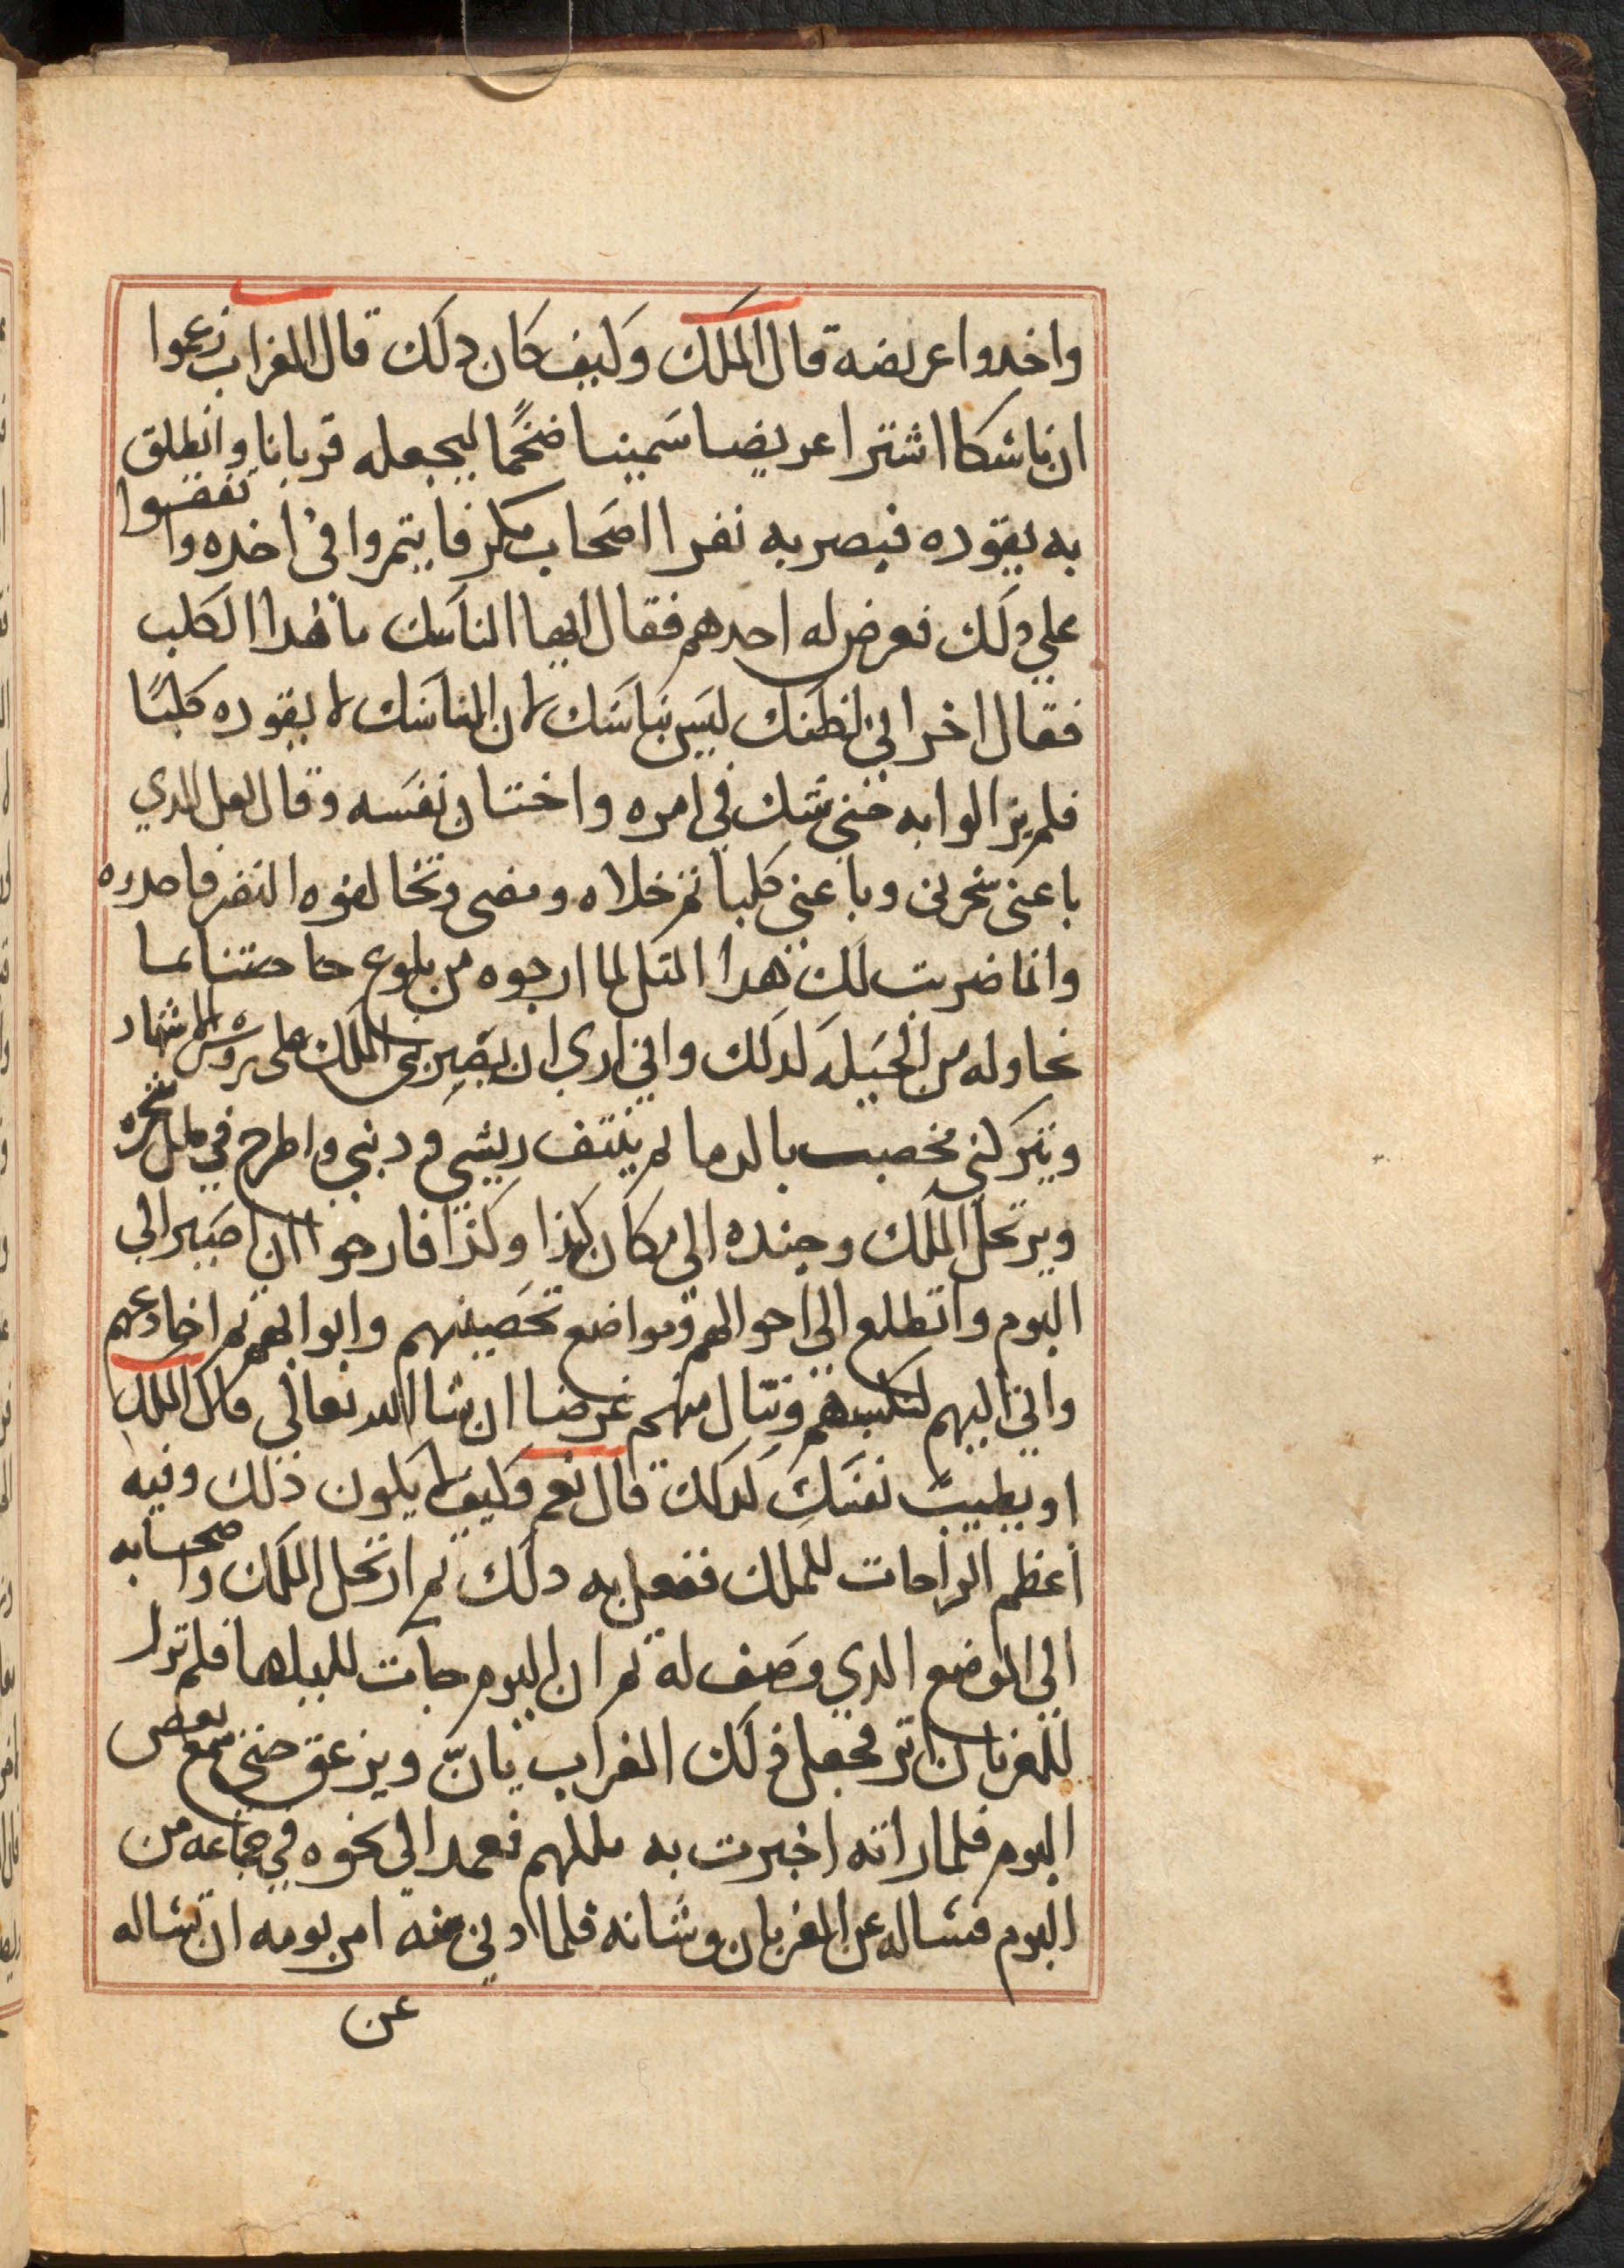 واخدوا عريضه قال الملك وكيف كان دلك قال الغراب زعموا
ان ناشكا اشترا عريضا سمينا ضخمًا ليجعله قربانا وانطلق
به يقوده فبصر به نفرا اصحاب مكر فايتمروا في اخده واتفقوا
علي دلك فعرض له احدهم فقال ايها الناسك ما هدا الكلب
فقال اخر اني لظنك ليس بناسك لان الناسك لا يقوده كلبًا
فلم يزالوا به حتى شك في امره واختان نفسه وقال لعل الدي
باعني سحرني وباعني كلبا ثم خلاه ومضى وتخالفوه النفر فاخدوه
وانما ضربت لك هدا المتل لما ارجوه من بلوع حاجتنا بما
نحاوله من الحيله لدلك واني اري ان يضربني الملك على روس الاشهاد
ويتركني مخصب بالدما ثم ينتف ريشي ودنبي واطرح في ظل شجره
ويرتحل الملك وجنده الى مكان كدا وكدا فارجوا ان اصير الي
البوم واتطلع الى احوالهم ومواضع تحصينهم وابوابهم ثم اخادعهم
واتي اليهم لنكيدهم وننال منهم غرضنا ان شا الله تعالي قال الملك
او بطيب نفسك لدلك قال نعم وكيف لا يكون ذلك وفيه
اعظم الراحات للملك ففعل به دلك ثم ارتحل الملك واصحابه
الي الموضع الدي وصف له ثم ان البوم جات لليلها فلم ترا
للغربان اتر فجعل ذلك الغراب يانّ ويزعق حتى سمع بعض
البوم فلما راته اخبرت به ملكهم فعمد الى نحوه في جماعه من
البوم فسال عن الغربان وشانه فلما دني منه امر بومه ان تساله
عن